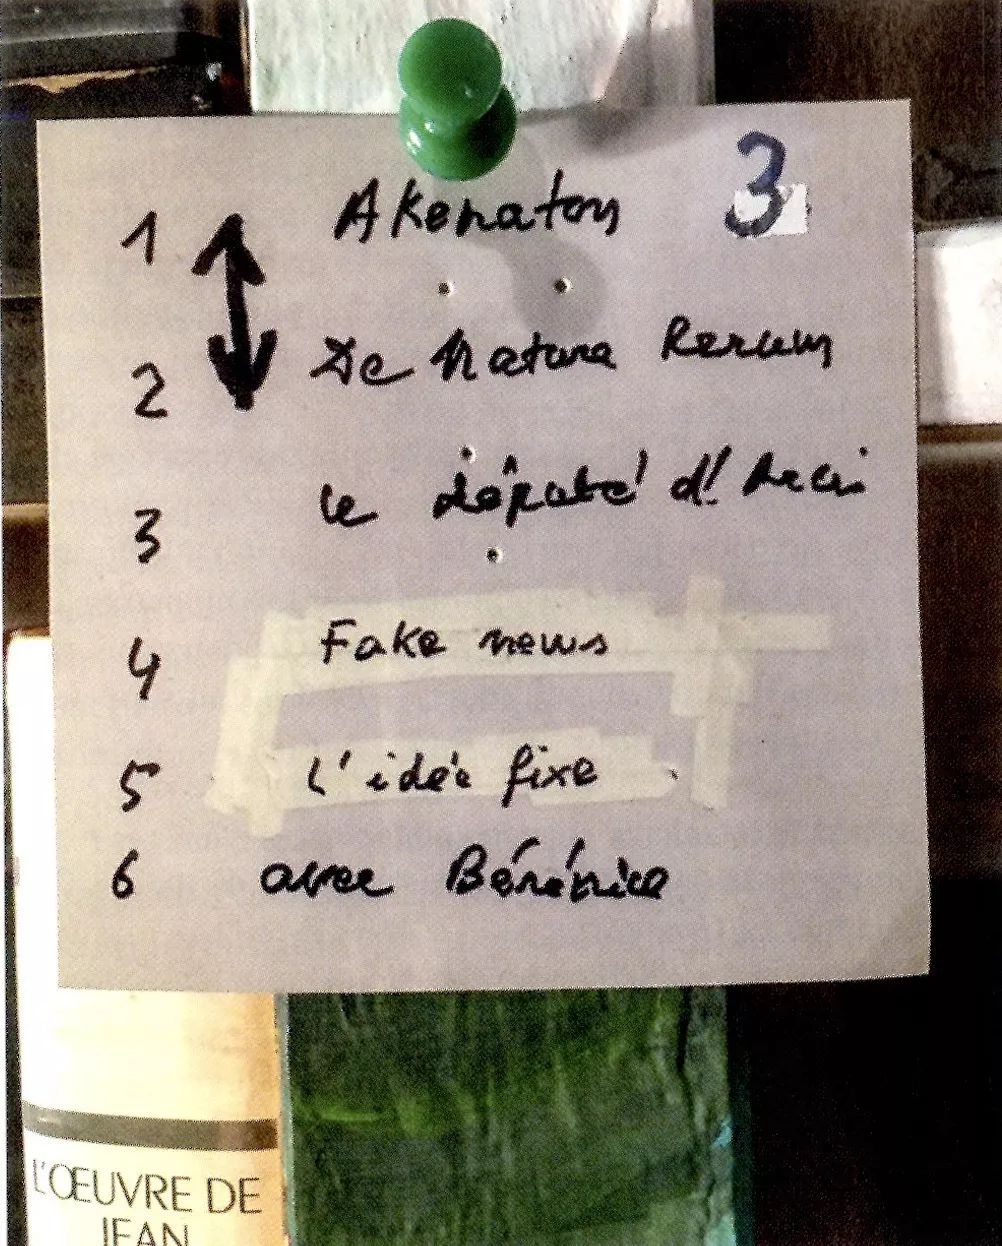 3
1 Akenaton
2 De Natura Rerum
3 le député d'Arcis
4 Fake news
5 l'idée fixe
6 avec Bérénice
L'ŒUVRE DE
JEAN